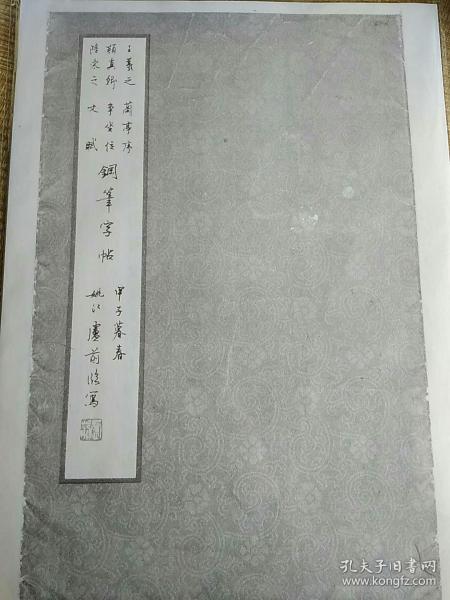 王羲之 蘭亭序
顏真卿 爭坐位
陸柬之 文賦
鋼筆字帖
甲子暮春
姚江 前臨寫
孔夫子旧书网
www.kongfz.com